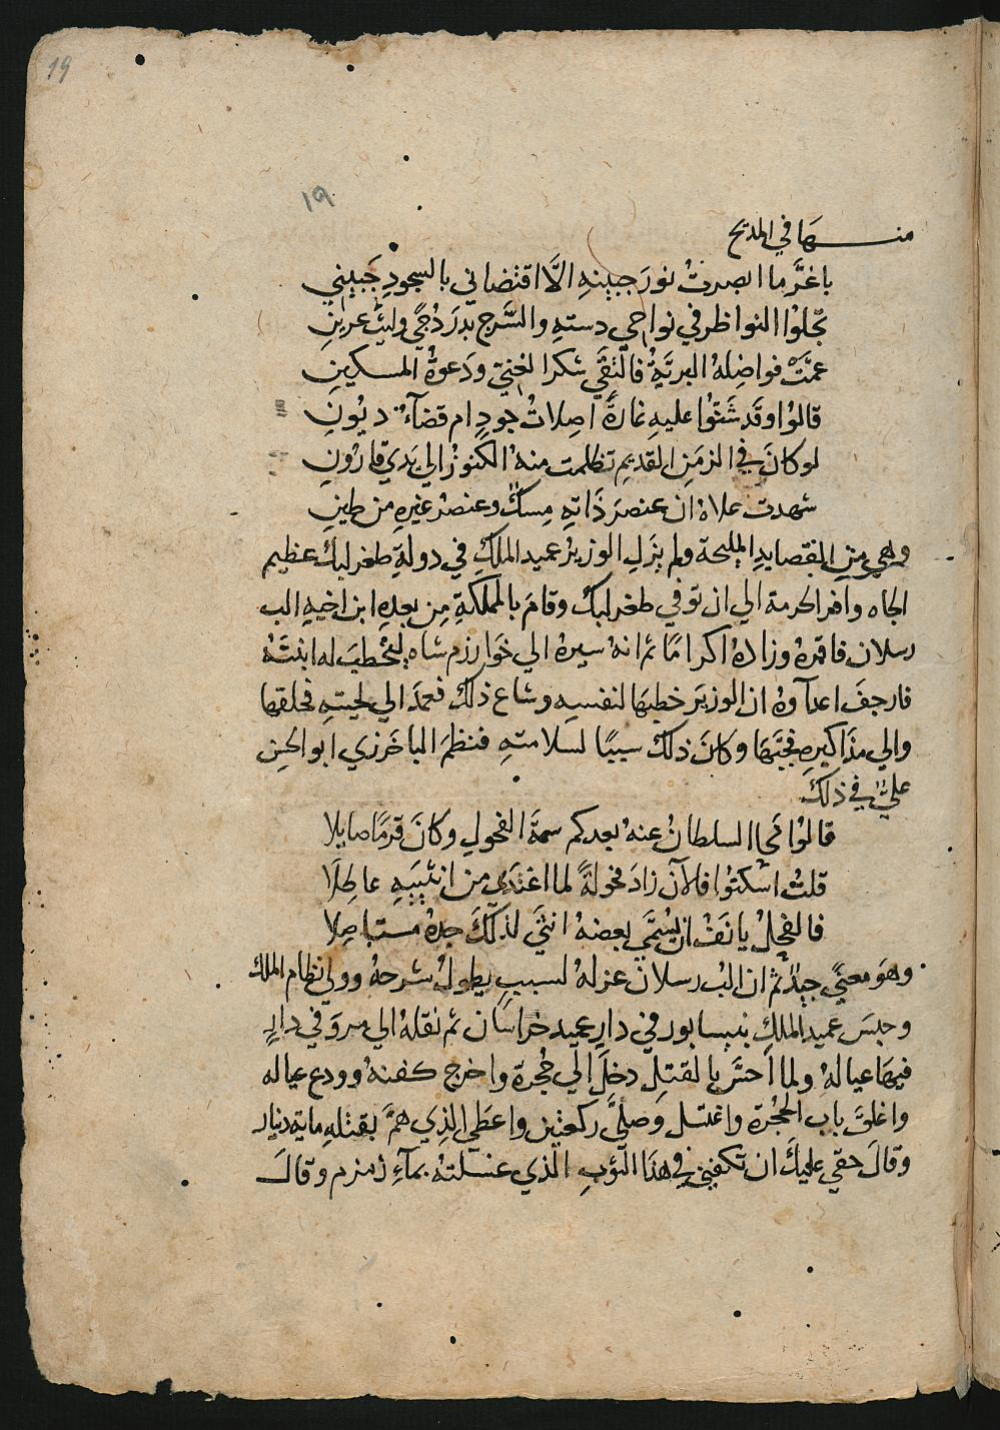 19
١٩
منها في المديح
باغرَّ ما ابصرتُ نورَ جبينهِ الَّا اقتضاني بالسجودِ جَبيني
تجلوُا النواظر في نواحي دستهِ والسَّرج بدرَ دُجًي وليثَ عرينِ
عمَّتْ فواضِلهُ البريَّةَ فالتقَي شكرا لغني ودَعوةُ المسكينِ
قالوُا وقَد شَنوُا عليهِ غارةً اصِلاتُ جودٍ ام قضآءُ ديُونِ
لو كانَ في الزمَنِ القديمِ تظلمت منهُ الكنوُز الي يَدي قارُونِ
شهدت علاهُ ان عنصرَ ذَاتهِ مِسكٌ وعنصرُ غيرِهِ من طينِ
وهي من القصايدِ المليحة ولم يزَلِ الوزيرُ عميد الملكِ في دولةِ طغرلبك عظيم
الجاه وافر الحرمة الي ان توفي طغرلبك وقامَ بالمملكةِ مِن بعدِهِ ابن اخيهِ الب
رسلان فاقرهُ وزادهُ اكرامًا ثم انهُ سيرهُ الي خوَارزم شاه ليخطِبَ له ابنتَهُ
فارجفَ اعدآوهُ ان الوزيرَ خطبَها لنفسهِ وشاعَ ذلك فعمدَ الي لحيتهِ فحلقها
والي مذَاكيرِهِ فجبَّها وكانَ ذلك سببًا لسلامتهِ فنظمَ الباخَرزي ابو الحسن
عليٌّ في ذلكَ
قالوُا محَا السلطانُ عنهُ بعدكم سمةَ الفحولِ وكانَ قرمًا صايلا
قلتُ اسْكتوُا فالآنَ زادَ فحولةً لما اغتدَي من انثيَيهِ عاطِلَا
فالفحلُ يانَفُ ان يُسمَّي بعضهُ انثَي لذلكَ جدهُ مستاصِلا
وهوَ معنًي جيدٌ ثم ان الب رسلان عزلهُ لسببٍ يطولُ شرحهُ وولي نظام الملك
وحبسَ عميد الملكِ بنيسابور في دارِ عميد خراسان ثم نقلهُ الي مروَ في دارٍ
فيهَا عيالهُ ولما احسَّ بالقتلِ دخلَ الي حُجرة واخرج كفنهُ وودع عياله
واغلقَ باب الحُجرة واغتسل وصليَّ ركعتين واعطَي الذِي همَّ بقتلهِ مايه دينار
وقالَ حقي عليكَ ان تكفنني في هذَا الثوبِ الذي غسلتهُ بمآءِ زمزم وقالَ